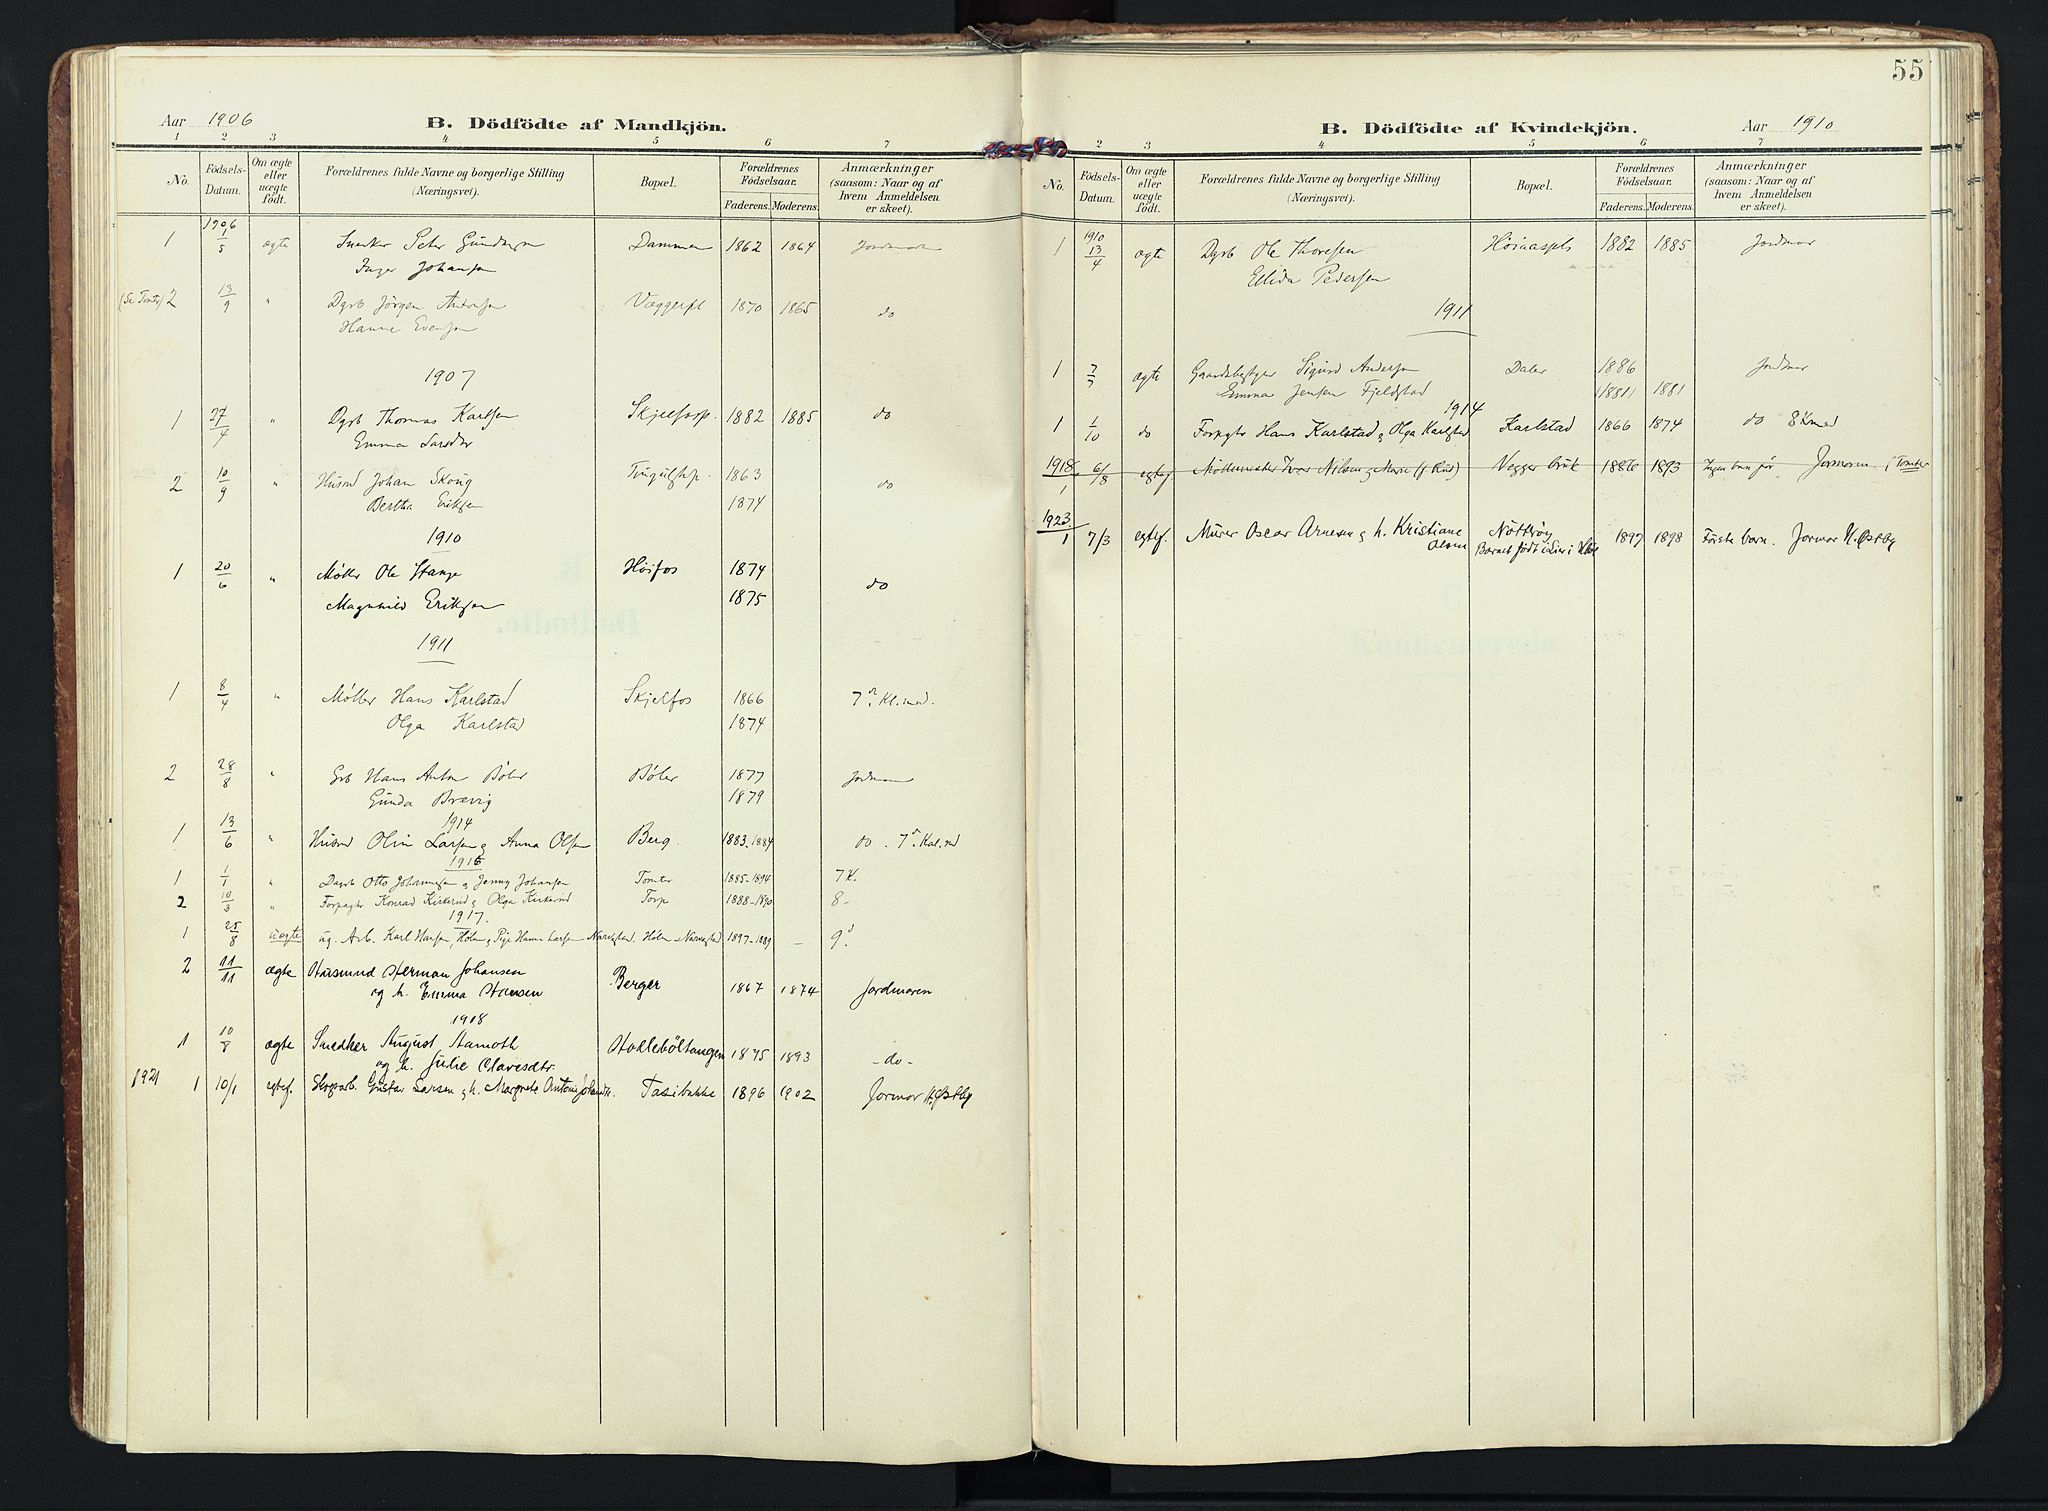 Aar 1906
B. Dödfödte af Mandkjön.
1 2 3 4 5 6 7
No. Födsels-Datum. Om ægte eller uægte födt. Forældrenes fulde Navne og borgerlige Stilling (Næringsvei). Bopæl. Forældrenes Födselsaar. Faderens. Moderens. Anmærkninger (saasom: Naar og af hvem Anmeldelsen er skeet).
1906
1 1/5 ægte Snedker Peter Gundersen Dammen 1862 1864 Jordmoder
Inger Johansen
(Se Tomter) 2 13/9 " Dgrb Jörgen Andersen Væggerpl 1870 1865 do
Hanne Evensen
1907
1 27/4 " Dgrb Thomas Karlsen 1882 1885 do
Emma Larsdtr
2 10/9 " Husmd Johan Skoug 1863 do
Bertha Eriksen 1874
1910
1 20/6 " Møller Ole Stange Høifos 1874 do
Magnhild Eriksen 1875
1911
1 8/4 " Møller Hans Karlstad Skjelfos 1866 7. Kl.md.
Olga Karlstad 1874
2 28/8 " Grb Hans Anton Bøler Bøler 1877 Jordm
Gunda Brevig 1879
1914
1 13/6 " Husmd Olin Larsen & Anna Olsen Berg. 1883-1884 do. 7 Kal.md
1915
1 1/1 " Dagrb Otto Johannesen & Jenny Johansen Tomter 1885-1894 7 K.
2 10/3 " Forpagtr Konrad Kirkerud & Olga Kirkerud Torp 1888-1890 8-
1917.
1 25/8 uægte ug. Arb. Karl Hansen, Hölen & Pige Hanna Larsen 1897-1889 - 9.
2 11/11 ægte Husmand Herman Johansen Berger 1867 1874 Jordmoren
og h. Emma Hansen
1918
1 10/8 ægte Snedker August Hamoth Hokleböltangen 1875 1893 -do-
og h. Julie Olavesdtr.
1921 1 10/1 egtef. Skogarb. Gustav Larsen & h. Margrete Antonie Tasibakke 1896 1902 Jormor H. Østby
55
B. Dödfödte af Kvindekjön.
Aar 1910
2 3 4 5 6 7
No. Födsels-Datum. Om ægte eller uægte födt. Forældrenes fulde Navne og borgerlige Stilling (Næringsvei). Bopæl. Forældrenes Födselsaar. Faderens. Moderens. Anmærkninger (saasom: Naar og af hvem Anmeldelsen er skeet).
1910
1 13/4 ægte Dgrb Ole Thoresen 1882 1885 Jordmor
Ellida Pedersen
1911
1 7/7 ægte Gaardsbestyrer Sigurd Andersen Daler 1886 Jordmor
Emma Jensen Fjeldstad (1881) 1881
1914
1 1/10 do Forpagtr Hans Karlstad & Olga Karlstad Karlstad 1866 1874 do 8 Kmd
1918 1 6/8 egtef Møllemester Ivar Nilsen & Marie (f Rud) Vegger bruk 1886 1893 Ingen barn før Jormoren i Tomter
1923 1 7/3 egtef. Murer Oscar Arnesen & h. Kristiane Olsen Nøtterøy 1897 1898 Förste barn. Jormor H. Østby
Barnet født